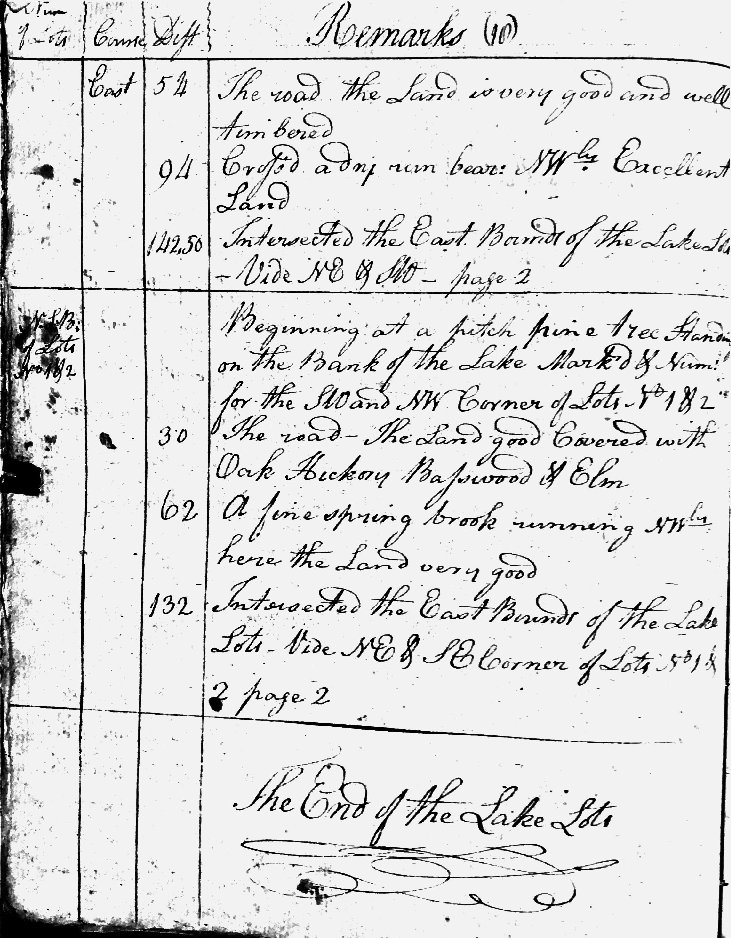 of Lots Course Dist Remarks (10)
East 54 The road the Land is very good and well
timbered
94 Cross'd a dry run bears NWly Excellent
Land
142.50 Intersected the East Bounds of the Lake Lots
- Vide NE & SW - page 2
N&SB: Beginning at a pitch pine tree Standing
of Lots on the Bank of the Lake Mark'd & Num:d
No 1 & 2 for the SW and NW Corner of Lots No 1 & 2
30 The road - The Land good Covered with
Oak Hickory Basswood & Elm
62 A fine spring brook running NWly
here the Land very good
132 Intersected the East Bounds of the Lake
Lots - Vide NE & SE Corner of Lots No 1 &
2 page 2
The End of the Lake Lots